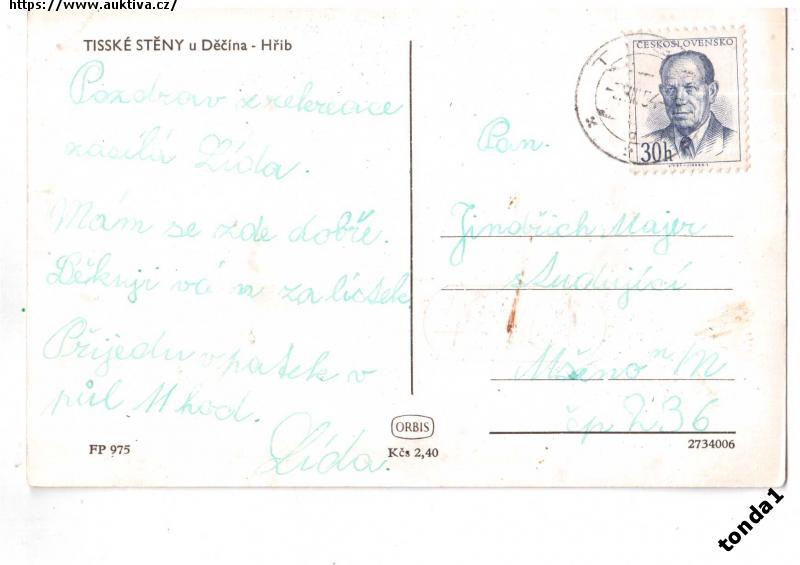 https://www.auktiva.cz/
TISSKÉ STĚNY u Děčína - Hřib
Pozdrav z rekreace
zasílá Lída.
Mám se zde dobře.
Děkuji vá m za lístek
Přijedu v pátek v
půl 11 hod.
Lída.
FP 975
ORBIS
Kčs 2,40
ČESKOSLOVENSKO
30h
Pan.
Jindřich Majer
studující
Mšeno n/M
čp 236
2734006
tonda1